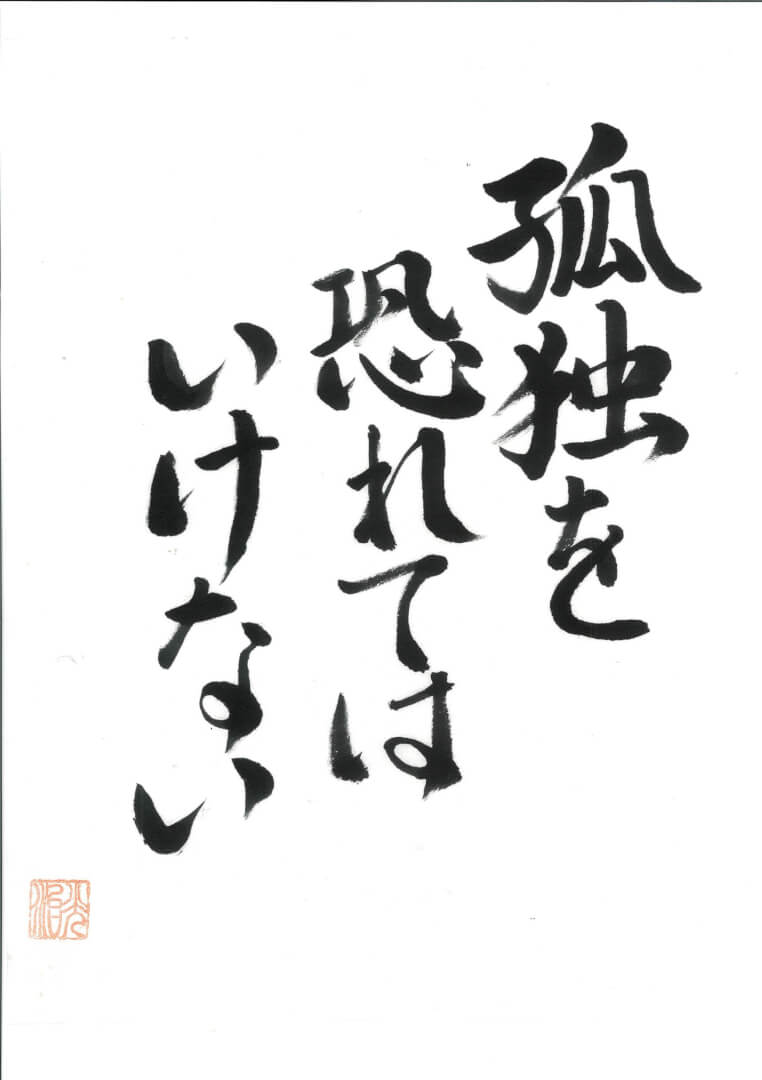 孤独を
恐れては
いけない